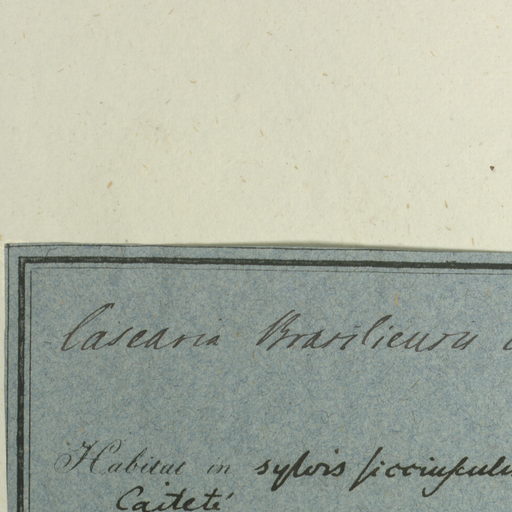 Casearia Brasiliensis
Habitat in sylvis
Caiteté